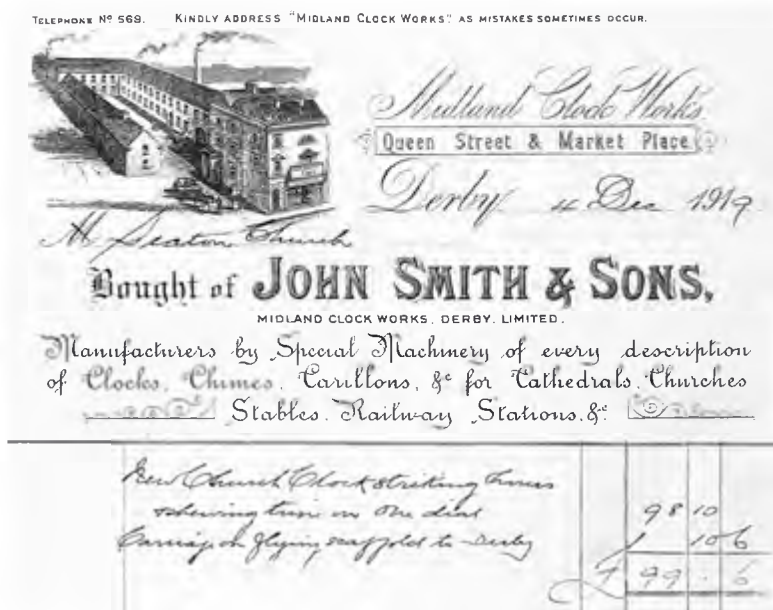 TELEPHONE Nº 569. KINDLY ADDRESS "MIDLAND CLOCK WORKS" AS MISTAKES SOMETIMES OCCUR.
Midland Clock Works
Queen Street & Market Place
Derby 4 Dec 1919
Seaton Church
Bought of JOHN SMITH & SONS,
MIDLAND CLOCK WORKS, DERBY, LIMITED.
Manufacturers by Special Machinery of every description
of Clocks, Chimes, Carillons, &c for Cathedrals, Churches
Stables, Railway Stations, &c.
New Church Clock striking hours
shewing time on one dial 98 10
Carriage on flying scaffold to Derby 1 10 6
£ 99 . 6